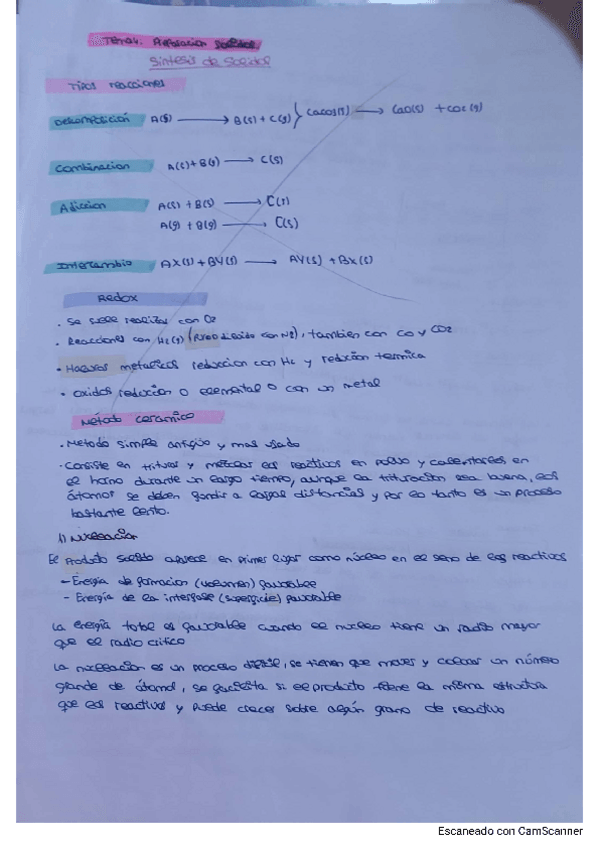 Tema 4. Preparacion Solidos.
Sintesis de Solidos
Tipos reacciones
Descomposición A(s) → B(s) + C(g) } CaCO3(s) → CaO(s) + CO2(g)
Combinacion A(s) + B(g) → C(s)
Adiccion A(s) + B(s) → C(s)
A(g) + B(g) → C(s)
Intercambio AX(s) + BY(s) → AY(s) + BX(s)
Redox
· Se suele realizar con O2
· Reacciones con H2(g) (puro diluido con N2), tambien con CO y CO2
· Haluros metalicos reduccion con H2 y reducion termica
· Oxidos reducion o elemental o con un metal
Método ceramico
· Metodo simple antigüo y mas usado
· Consiste en triturar y mezclar los reactivos en polvo y calentarlos en
el horno durante un largo tiempo, aunque la trituracion sea buena, los
átomos se deben a largas distancias y por lo tanto es un proceso
bastante lento.
1) Nucleacion
El Producto solido aparece en primer lugar como núcleo en el seno de los reactivos
- Energía de formacion (volumen) favorable
- Energía de la interfase (superficie) favorable
La energía total es favorable cuando el nucleo tiene un radio mayor
que el radio critico
La nucleacion es un proceso dificil, se tienen que mover y colocar un número
grande de átomos, se facilita si el producto tiene la misma estructura
que los reactivos y puede crecer sobre algún grano de reactivo
Escaneado con CamScanner